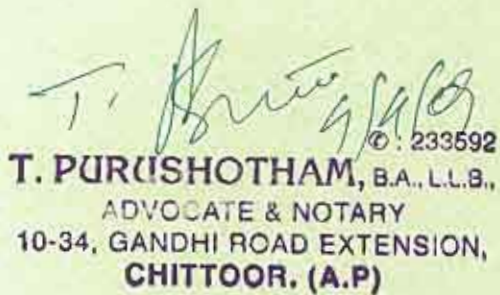 T. 9/4/09
✆ : 233592
T. PURUSHOTHAM, B.A., L.L.B.,
ADVOCATE & NOTARY
10-34, GANDHI ROAD EXTENSION,
CHITTOOR. (A.P)